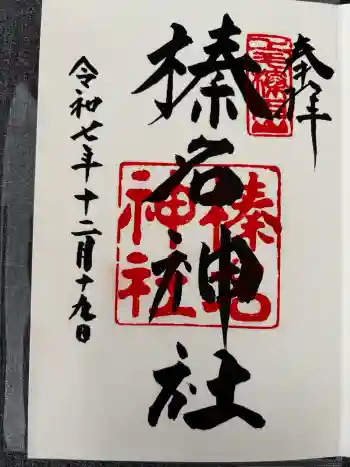 奉拝
榛名神社
榛名神社
令和七年十二月十九日